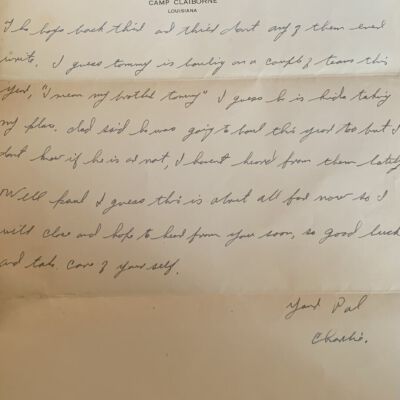 CAMP CLAIBORNE
LOUISIANA
The boys back thid and thisd dont any of them ever
write. I guess tommy is bowling on a couple of teams this
year, "I mean my brother tommy" I guess he is kida taking
my place. dad said he was going to bowl this year too but I
dont know if he is or not, I havent heard from them lately
Well paul I guess this is about all for now so I
will close and hope to hear from you soon, so good luck
and take care of yourself.
Your Pal
Charlie.